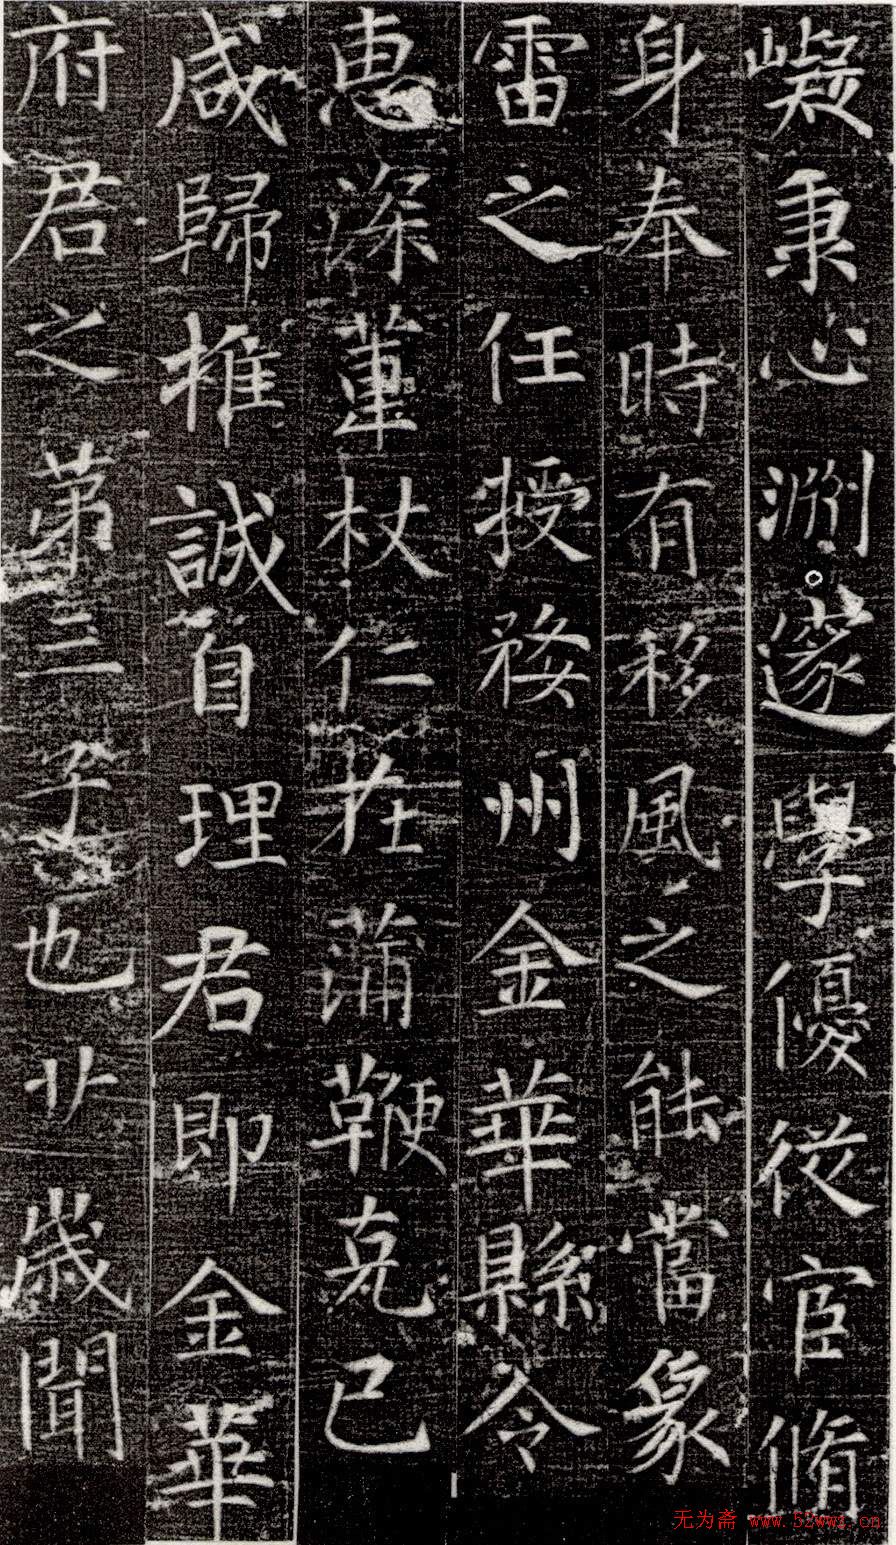 嶷秉心淵邃學優從宦脩
身奉時有移風之能當象
雷之任授婺州金華縣令
惠深董杖仁在蒲鞭克己
咸歸推誠自理君即金華
府君之第三子也廿歲聞
无为斋 www.52wwz.cn